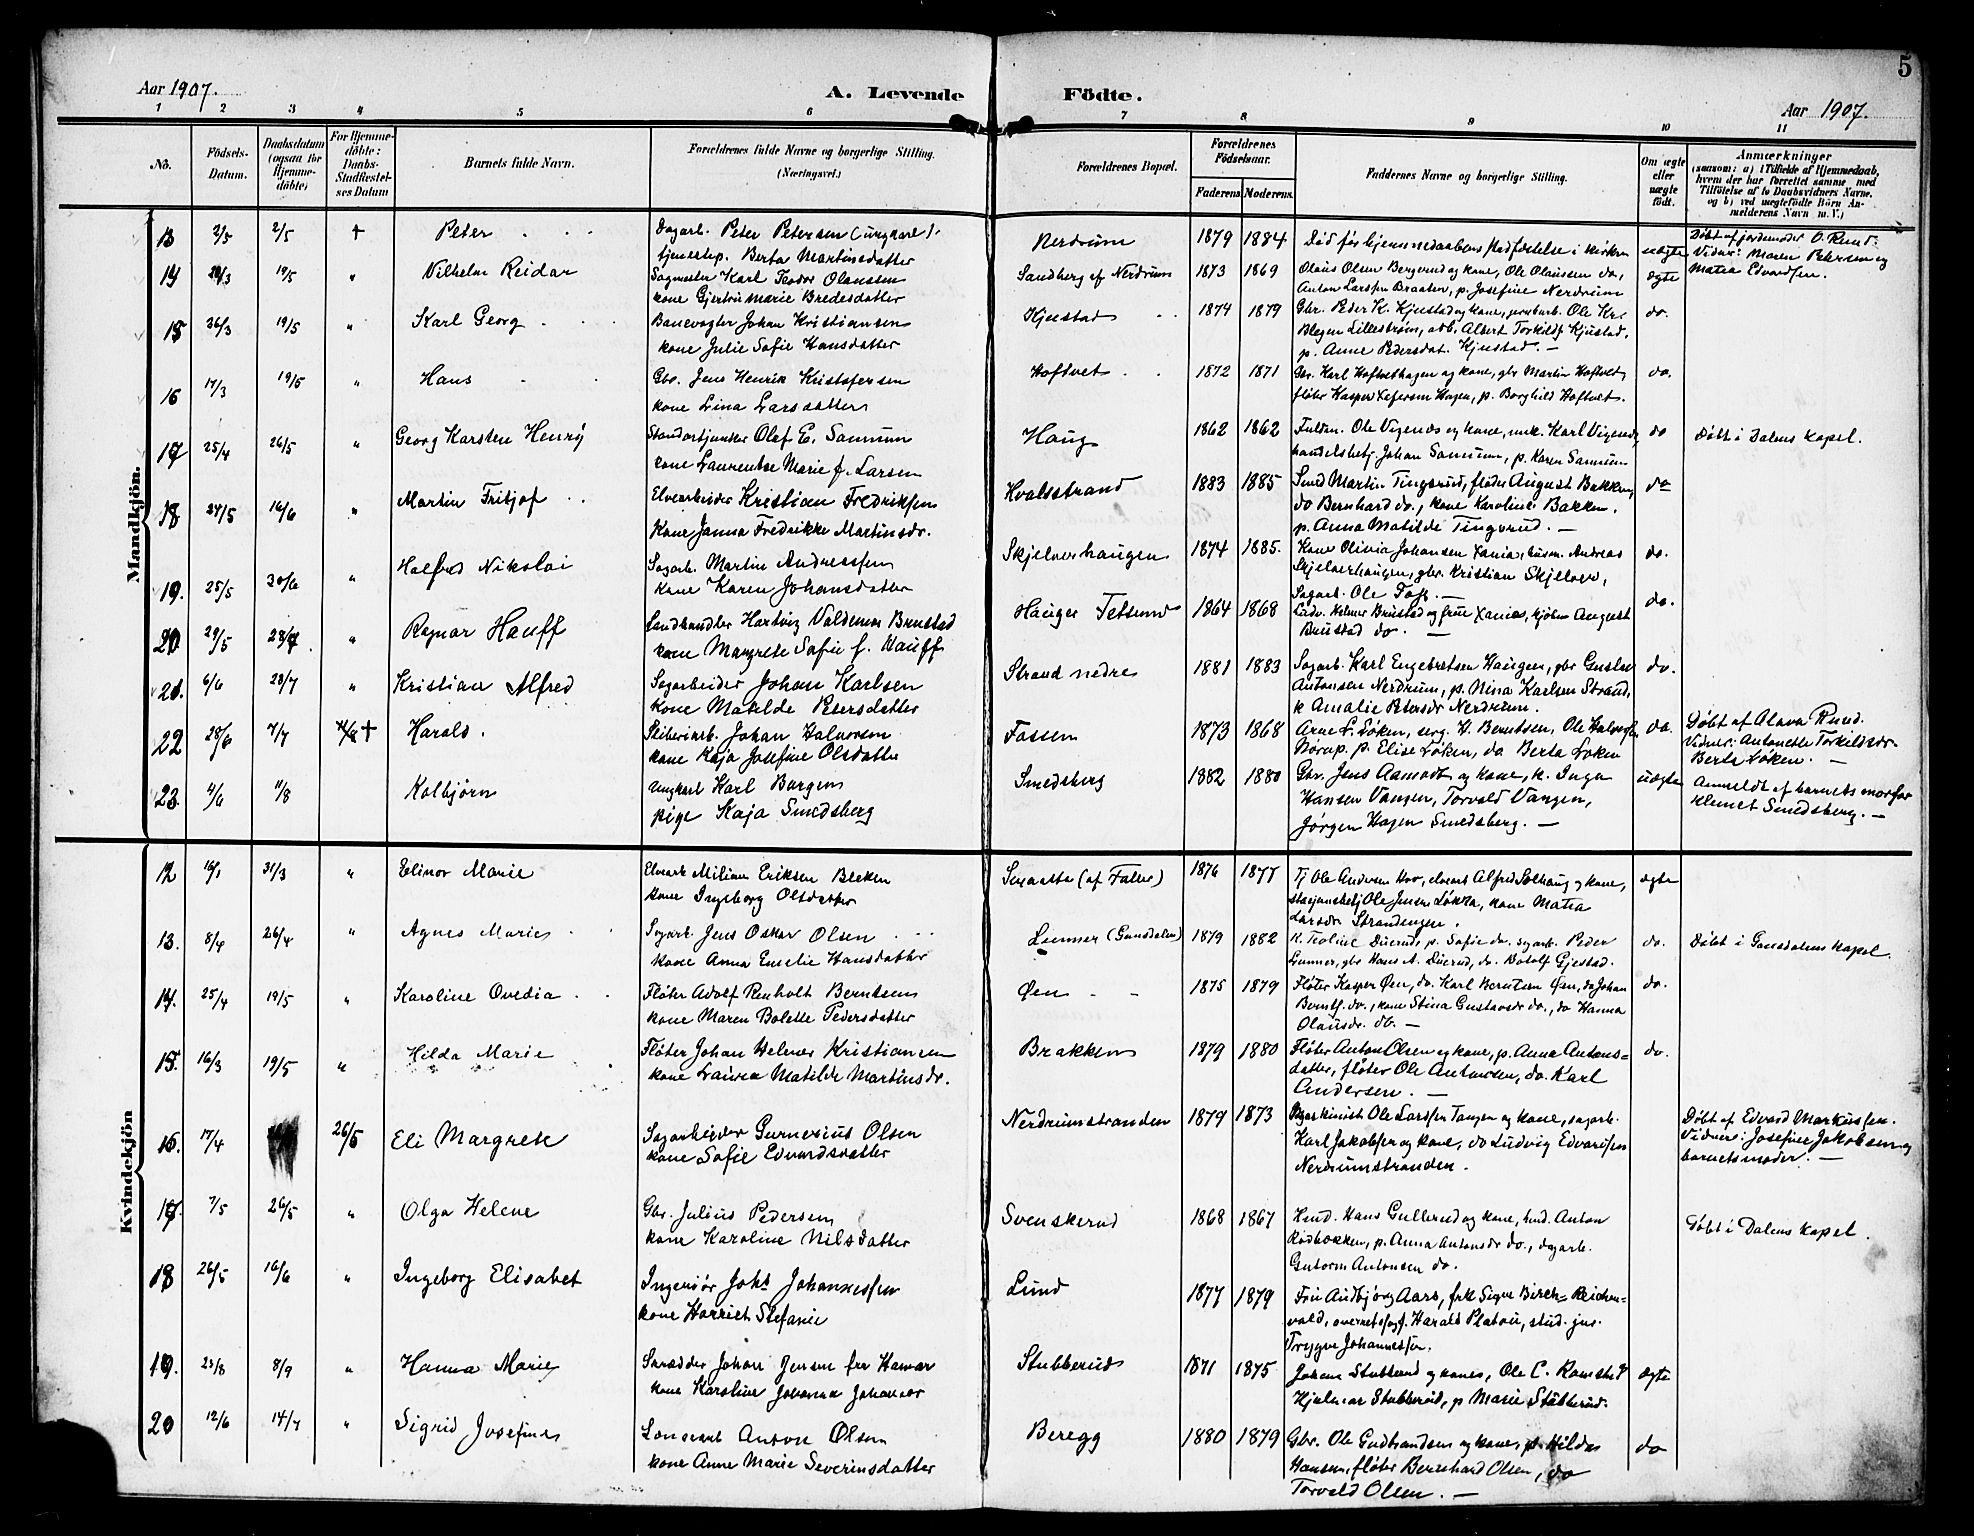 5
Aar 1907.
A. Levende Födte.
Aar 1907.
1 2 3 4 5 6 7 8 9 10 11
No.
Födsels-Datum.
Daabsdatum (ogsaa for Hjemmedöbte)
For Hjemmedöbte: Daabs-Stadfæstelses Datum
Barnets fulde Navn.
Forældrenes fulde Navne og borgerlige Stilling.
(Næringsvei.)
Forældrenes Bopæl.
Forældrenes Födselsaar.
Faderens Moderens
Faddernes Navne og borgerlige Stilling.
Om ægte eller uægte födt.
Anmærkninger
(saasom: a) i Tilfælde af Hjemmedaab, hvem der har forrettet samme med Tilföielse af to Daabsvidners Navne. og b) ved uægtefödte Börn Anmelderens Navn m. V.)
Mandkjön.
13 2/5 2/5 + Peter
Dagarb. Peter Petersen (ungkarl)
tjenestep. Berta Martinsdatter
Nerdrum 1879 1884
Død før hjemmedaabens stadfæstelse i kirken uægte
Døbt af jordemoder O. Rund.
Vidner: Maren Petersen og
Matea Edvardsen.
14 19/5 " Vilhelm Reidar
Sagmester Karl Teodor Olaussen
kone Gjertrud Marie Bredesdatter
Sandberg af Nerdrum 1873 1869
Olaus Olsen Bergerud og kone, Ole Olaussen do,
Anton Larssen Braaten, p. Josefine Nerdrum
ægte
15 26/3 19/5 " Karl Georg
Banevogter Johan Kristiansen
kone Julie Sofie Hansdatter
Kjustad 1874 1879
Gbr. Peder K. Kjustad og kone, jernbarb. Ole Kr.
Lillestrøm, arb. Albert Torkilds. Kjustad,
p. Anne Pedersdat. Kjustad. —
do.
16 17/3 19/5 " Hans
Gbr. Jens Henrik Kristofersen
kone Lina Larsdatter
Hoftvet 1872 1871
Gbr. Karl Hoftvethagen og kone, gbr Martin Hoftvet,
fløter Kasper Hagen, p. Borghild Hoftvet.
do.
17 25/4 26/5 " Georg Karsten Henry
Olaf E. Sannum
kone Laurentse Marie f. Larsen
Haug 1862 1862
Ole Vigenæs og kone, Karl Vigenæs,
handelsbetj. Johan Sannum, p. Karen Sannum
do
Døbt i Dalens kapel.
18 24/5 16/6 " Martin Fritjof
Elvearbeider Kristian Fredriksen
Kone Janna Fredrikke Martinsdr.
Hvalsstrand 1883 1885
Smed Martin Tingsrud, fløter August Bakken,
do Bernhard do., kone Karoline Bakken,
p. Anna Matilde Tingsrud. —
do
19. 25/5 30/6 " Halfred Nikolai
Sagarb. Martin Andreassen
kone Karen Johansdatter
Skjelverhaugen 1874 1885.
Kone Olivia Johansen Xania, husm. Andreas
Skjelverhaugen, gbr. Kristian Skjelver,
Sagarb. Ole Foss. —
do.
20 29/5 28/7. " Ragnar Hauff
Landhandler Hartvig Valdemar Brustad
kone Margrete Sofie f. Hauff
Hauger Fetsund 1864 1868
Helmer Brustad og frue Xania, kjøbm August
Brustad do. —
do.
21. 6/6 28/7 " Kristian Alfred
Sagarbeider Johan Karlsen
kone Matilde Petersdatter
Strand nedre 1881 1883
Sagarb. Karl Engebretsen Haugen, gbr Gustav
Antonsen Nerdrum, p. Nina Karlsen Strand,
k Amalie Petersdr Nerdrum.
do.
22 28/6 7/7 + Harald.
Johan Halvorsen
kone Kaja Josefine Olsdatter
Fossum 1873 1868
Arne L. Løken, serg. H. Berntsen, Ole Halvorsen
p. Elise Løken, do Berta Løken
do.
Døbt af Olava Rund.
Vidner: Antonette Torkildsdr.
Berta Løken. —
23. 4/6 11/8 Kolbjörn
ungkarl Karl Borgen
pige Kaja Smedsberg
Smedsberg 1882 1880
Gbr. Jens Aamodt og kone, k. Inga
Hansen Vangen, Torvald Vangen,
Jørgen Hagen Smedsberg. —
uægte
Anmeldt af barnets morfar
Klemet Smedsberg. —
Kvindekjön
12 31/3 " Elinor Marie
Elvearb Milian Eriksen Bleken
kone Ingeborg Olsdatter
(af Faller) 1876 1877
Tj Ole Andersen Hov, elvearb Alfred Solhaug og kone,
stasjonsbetj Ole Jensen Løkka, kone Matea
Larsdr Strandengen.
ægte
13. 8/4 26/4 " Agnes Marie
Sagarb. Jens Oskar Olsen
kone Anna Emelie Hansdatter
Lunner (Gansdalen) 1879 1882
K. Teoline Duerud, p. Sofie do. sagarb. Peder
Lunner, gbr Hans A. Duerud, do. Botolf Gjestad.
do.
Døbt i Gansdalens kapel.
14. 25/4 19/5 " Karoline Ovedia
Fløter Adolf Reinholt Berntsen
kone Maren Bolette Pedersdatter
Øen 1875 1879
Fløter Kasper Øen, do. Karl Berntsen Øen, do Johan
Berntss. do., kone Stina Gustavsdr do., do Hanna
Olausdr. do. —
do.
15. 16/3 19/5 " Hilda Marie
Fløter Johan Helmer Kristiansen
kone Laura Matilde Martinsdr.
Brakken 1879 1880
Fløter Anton Olsen og kone, p. Anna Antons-
datter, fløter Ole Antonsen, do. Karl
Andersen. —
do.
16. 17/4 26/5 Eli Margrete
Sagarbejder Gunerius Olsen
kone Sofie Edvardsdatter
Nerdrumstranden 1879 1873
Ole Larssen Tangen og kone, sagarb.
Karl Jakobsen og kone, do Ludvig Edvardsen
Nerdrumstranden.
Døbt af Edvard Markussen.
Vidner: Josefine Jakobsen og
barnets moder. —
17. 7/5 26/5 " Olga Helene
Gbr. Julius Pedersen
kone Karoline Nilsdatter
Svenskerud 1868 1867
Hmd. Hans Gullerud og kone, hmd. Anton
Rødbakken, p. Anna Antonsdr do., dagarb.
Gutorm Antonsen do.
Døbt i Dalens kapel.
18 26/5 16/6 " Ingeborg Elisabet
Ingeniør Johs Johannessen
kone Harriet Stefanie
Lund 1877 1879
Fru Audbjørg Aars, frk Signe Birch-Reichen-
wald, overretssagf. Harald Platou, stud. jur.
Trygve Johannessen.
19. 8/9 " Hanna Marie
Johan Jensen fra Hamar
kone Karoline Johanna
Stubberud 1871 1875
Johan Stubberud og kone, Ole C. Ramstad
Hjalmar Stubberud, p Marie Stubberud.
ægte
20 12/6 14/7 " Sigrid Josefine
Anton Olsen
kone Anne Marie Severinsdatter
Beregg 1880 1879
Gbr. Ole Gudbrandsen og kone, p. Hilda
Hansen, fløter Bernhard Olsen, do
Torvald Olsen. —
do